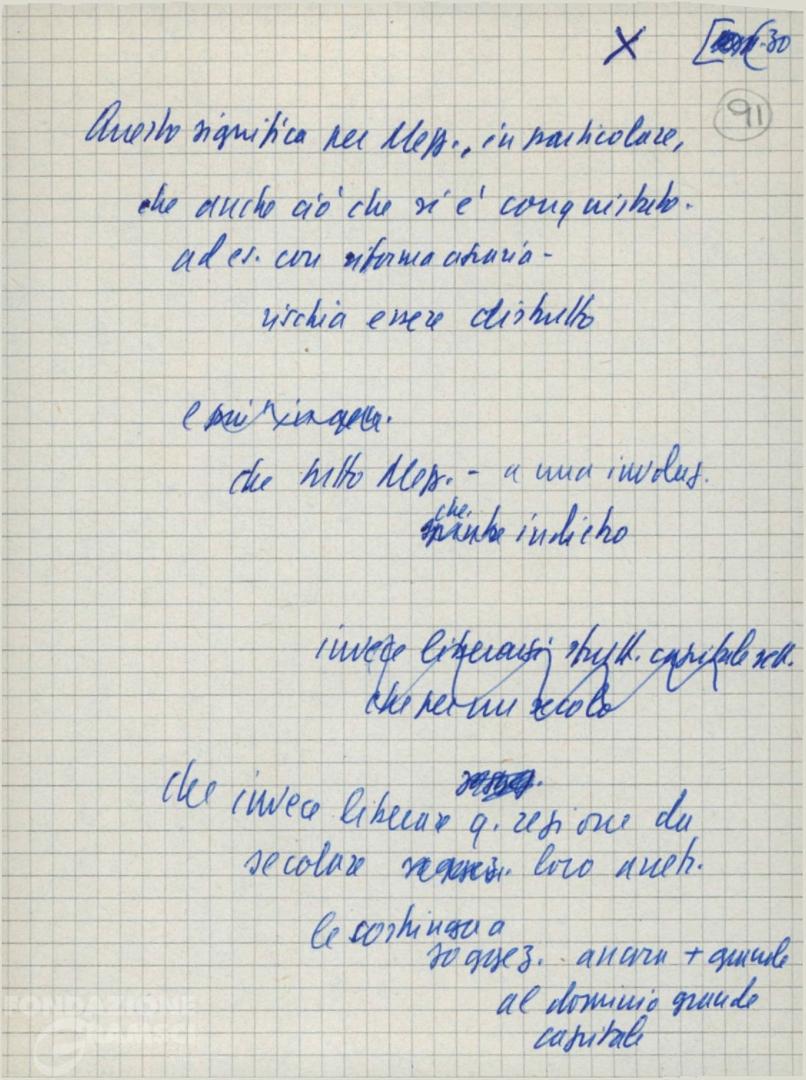 X [-30
91
Questo significa per Mezz., in particolare,
che anche ciò che si è conquistato -
ad es. con riforma agraria -
rischia essere distrutto
e più in gen.
che tutto Mezz. - a una involuz.
che
indietro
invece liberarsi strutt. capitale sett.
che per un secolo
che invece liberare q. regione da
secolare loro arretr.
le costringa a
soggez. ancora + grande
al dominio grande
capitale
FONDAZIONE
GRAMSCI